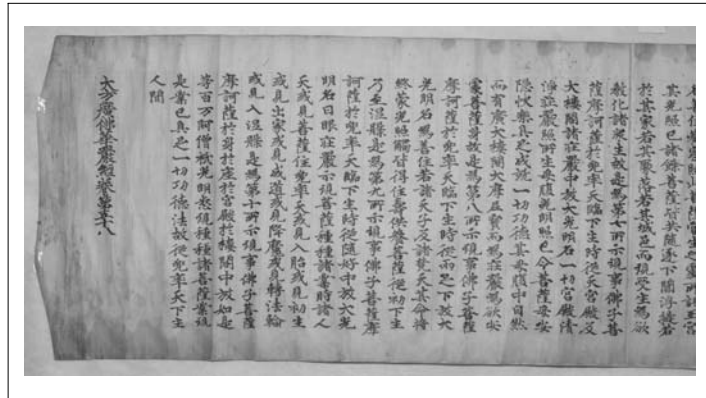 其光照已諸餘菩薩皆共隨逐下閻浮提若
於其家若其聚落若其城邑而現受生為欲
教化諸衆生故是為第七所示現事佛子菩
薩摩訶薩於兜率天臨下生時從天宮殿及
大樓閣諸莊嚴中放大光明名一切宮殿清
淨莊嚴照所生母腹光明照已令菩薩母安
隱快樂具足成就一切功德其母腹中自然
而有廣大樓閣大摩尼寶而為莊嚴為欲安
處菩薩身故是為第八所示現事佛子菩薩
摩訶薩於兜率天臨下生時從兩足下放大
光明名為善住若諸天子及諸梵天其命將
終蒙光照觸皆得住壽供養菩薩從初下生
乃至涅槃是為第九所示現事佛子菩薩摩
訶薩於兜率天臨下生時從隨好中放大光
明名曰眼莊嚴示現菩薩種種諸業時諸人
天或見菩薩住兜率天或見入胎或見初生
或見出家或見成道或見降魔或見轉法輪
或見入涅槃是為第十所示現事佛子菩薩
摩訶薩於身於座於宮殿於樓閣中放如是
等百万阿僧祇光明悉現種種諸菩薩業現
是業已具足一切功德法故從兜率天下生
人間
大方廣佛華嚴經卷第五十八